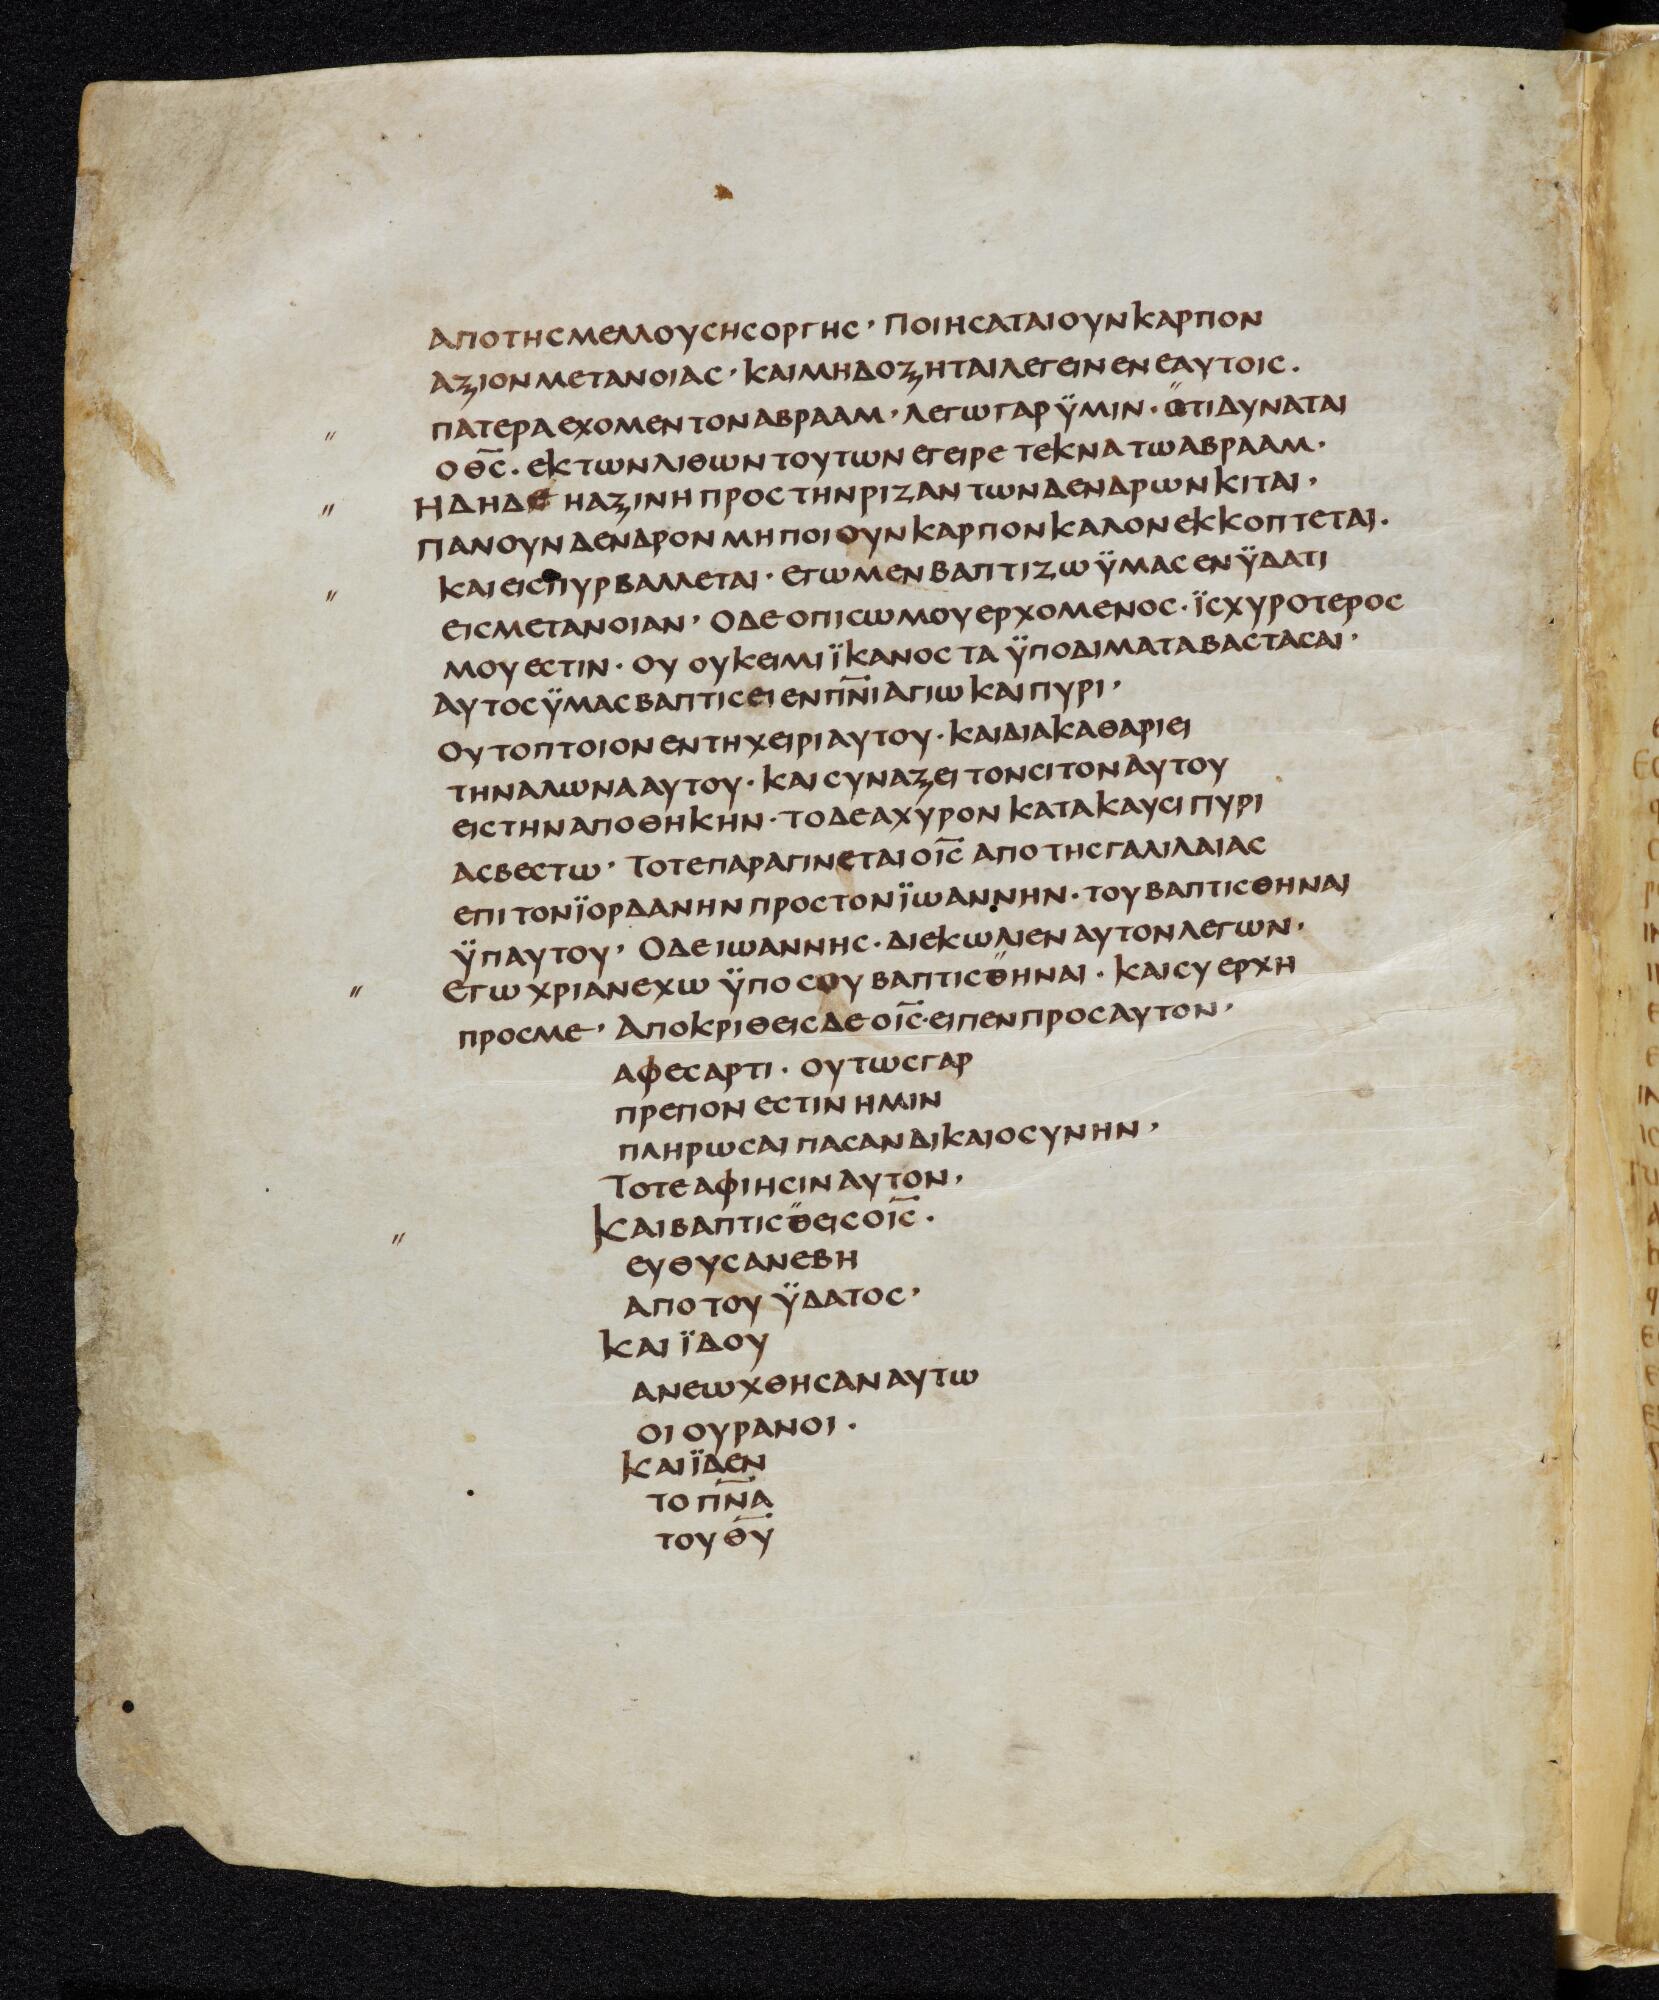 ΑΠΟΤΗСΜΕΛΛΟΥСΗСΟΡΓΗС· ΠΟΙΗСΑΤΑΙΟΥΝΚΑΡΠΟΝ
ΑΞΙΟΝΜΕΤΑΝΟΙΑС· ΚΑΙΜΗΔΟΞΗΤΑΙΛΕΓΕΙΝΕΝΕΑΥΤΟΙС·
ΠΑΤΕΡΑΕΧΟΜΕΝΤΟΝΑΒΡΑΑΜ· ΛΕΓωΓΑΡΫΜΙΝ· ΟΤΙΔΥΝΑΤΑΙ
ΟΘ̅С̅· ΕΚΤωΝΛΙΘωΝΤΟΥΤωΝΕΓΕΙΡΕΤΕΚΝΑΤωΑΒΡΑΑΜ·
ΗΔΗΔΕΗΑΞΙΝΗΠΡΟСΤΗΝΡΙΖΑΝΤωΝΔΕΝΔΡωΝΚΙΤΑΙ·
ΠΑΝΟΥΝΔΕΝΔΡΟΝΜΗΠΟΙΟΥΝΚΑΡΠΟΝΚΑΛΟΝΕΚΚΟΠΤΕΤΑΙ·
ΚΑΙΕΙСΠΥΡΒΑΛΛΕΤΑΙ· ΕΓωΜΕΝΒΑΠΤΙΖωΫΜΑСΕΝΫΔΑΤΙ
ΕΙСΜΕΤΑΝΟΙΑΝ· ΟΔΕΟΠΙСωΜΟΥΕΡΧΟΜΕΝΟС· ΪСΧΥΡΟΤΕΡΟС
ΜΟΥΕСΤΙΝ· ΟΥΟΥΚΕΙΜΙΪΚΑΝΟСΤΑΫΠΟΔΙΜΑΤΑΒΑСΤΑСΑΙ·
ΑΥΤΟСΫΜΑСΒΑΠΤΙСΕΙΕΝΠ̅Ν̅ΙΑΓΙωΚΑΙΠΥΡΙ·
ΟΥΤΟΠΤΟΙΟΝΕΝΤΗΧΕΙΡΙΑΥΤΟΥ· ΚΑΙΔΙΑΚΑΘΑΡΙΕΙ
ΤΗΝΑΛωΝΑΑΥΤΟΥ· ΚΑΙСΥΝΑΞΕΙΤΟΝСΙΤΟΝΑΥΤΟΥ
ΕΙСΤΗΝΑΠΟΘΗΚΗΝ· ΤΟΔΕΑΧΥΡΟΝΚΑΤΑΚΑΥСΙΠΥΡΙ
ΑСΒΕСΤω· ΤΟΤΕΠΑΡΑΓΙΝΕΤΑΙΟΙ̅С̅ΑΠΟΤΗСΓΑΛΙΛΑΙΑС
ΕΠΙΤΟΝΪΟΡΔΑΝΗΝΠΡΟСΤΟΝΪωΑΝΝΗΝ· ΤΟΥΒΑΠΤΙСΘΗΝΑΙ
ΫΠΑΥΤΟΥ· ΟΔΕΙωΑΝΝΗС· ΔΙΕΚωΛΙΕΝΑΥΤΟΝΛΕΓωΝ·
ΕΓωΧΡΙΑΝΕΧωΫΠΟСΟΥΒΑΠΤΙСΘΗΝΑΙ· ΚΑΙСΥΕΡΧΗ
ΠΡΟСΜΕ· ΑΠΟΚΡΙΘΕΙСΔΕΟΙ̅С̅·ΕΙΠΕΝΠΡΟСΑΥΤΟΝ·
ΑΦΕСΑΡΤΙ· ΟΥΤωСΓΑΡ
ΠΡΕΠΟΝΕСΤΙΝΗΜΙΝ
ΠΛΗΡωСΑΙΠΑСΑΝΔΙΚΑΙΟСΥΝΗΝ·
ΤΟΤΕΑΦΙΗСΙΝΑΥΤΟΝ·
ΚΑΙΒΑΠΤΙСΘΕΙСΟΙ̅С̅·
ΕΥΘΥСΑΝΕΒΗ
ΑΠΟΤΟΥΫΔΑΤΟС·
ΚΑΙΪΔΟΥ
ΑΝΕωΧΘΗСΑΝΑΥΤω
ΟΙΟΥΡΑΝΟΙ·
ΚΑΙΪΔΕΝ
ΤΟΠ̅Ν̅Α
ΤΟΥΘ̅Υ̅